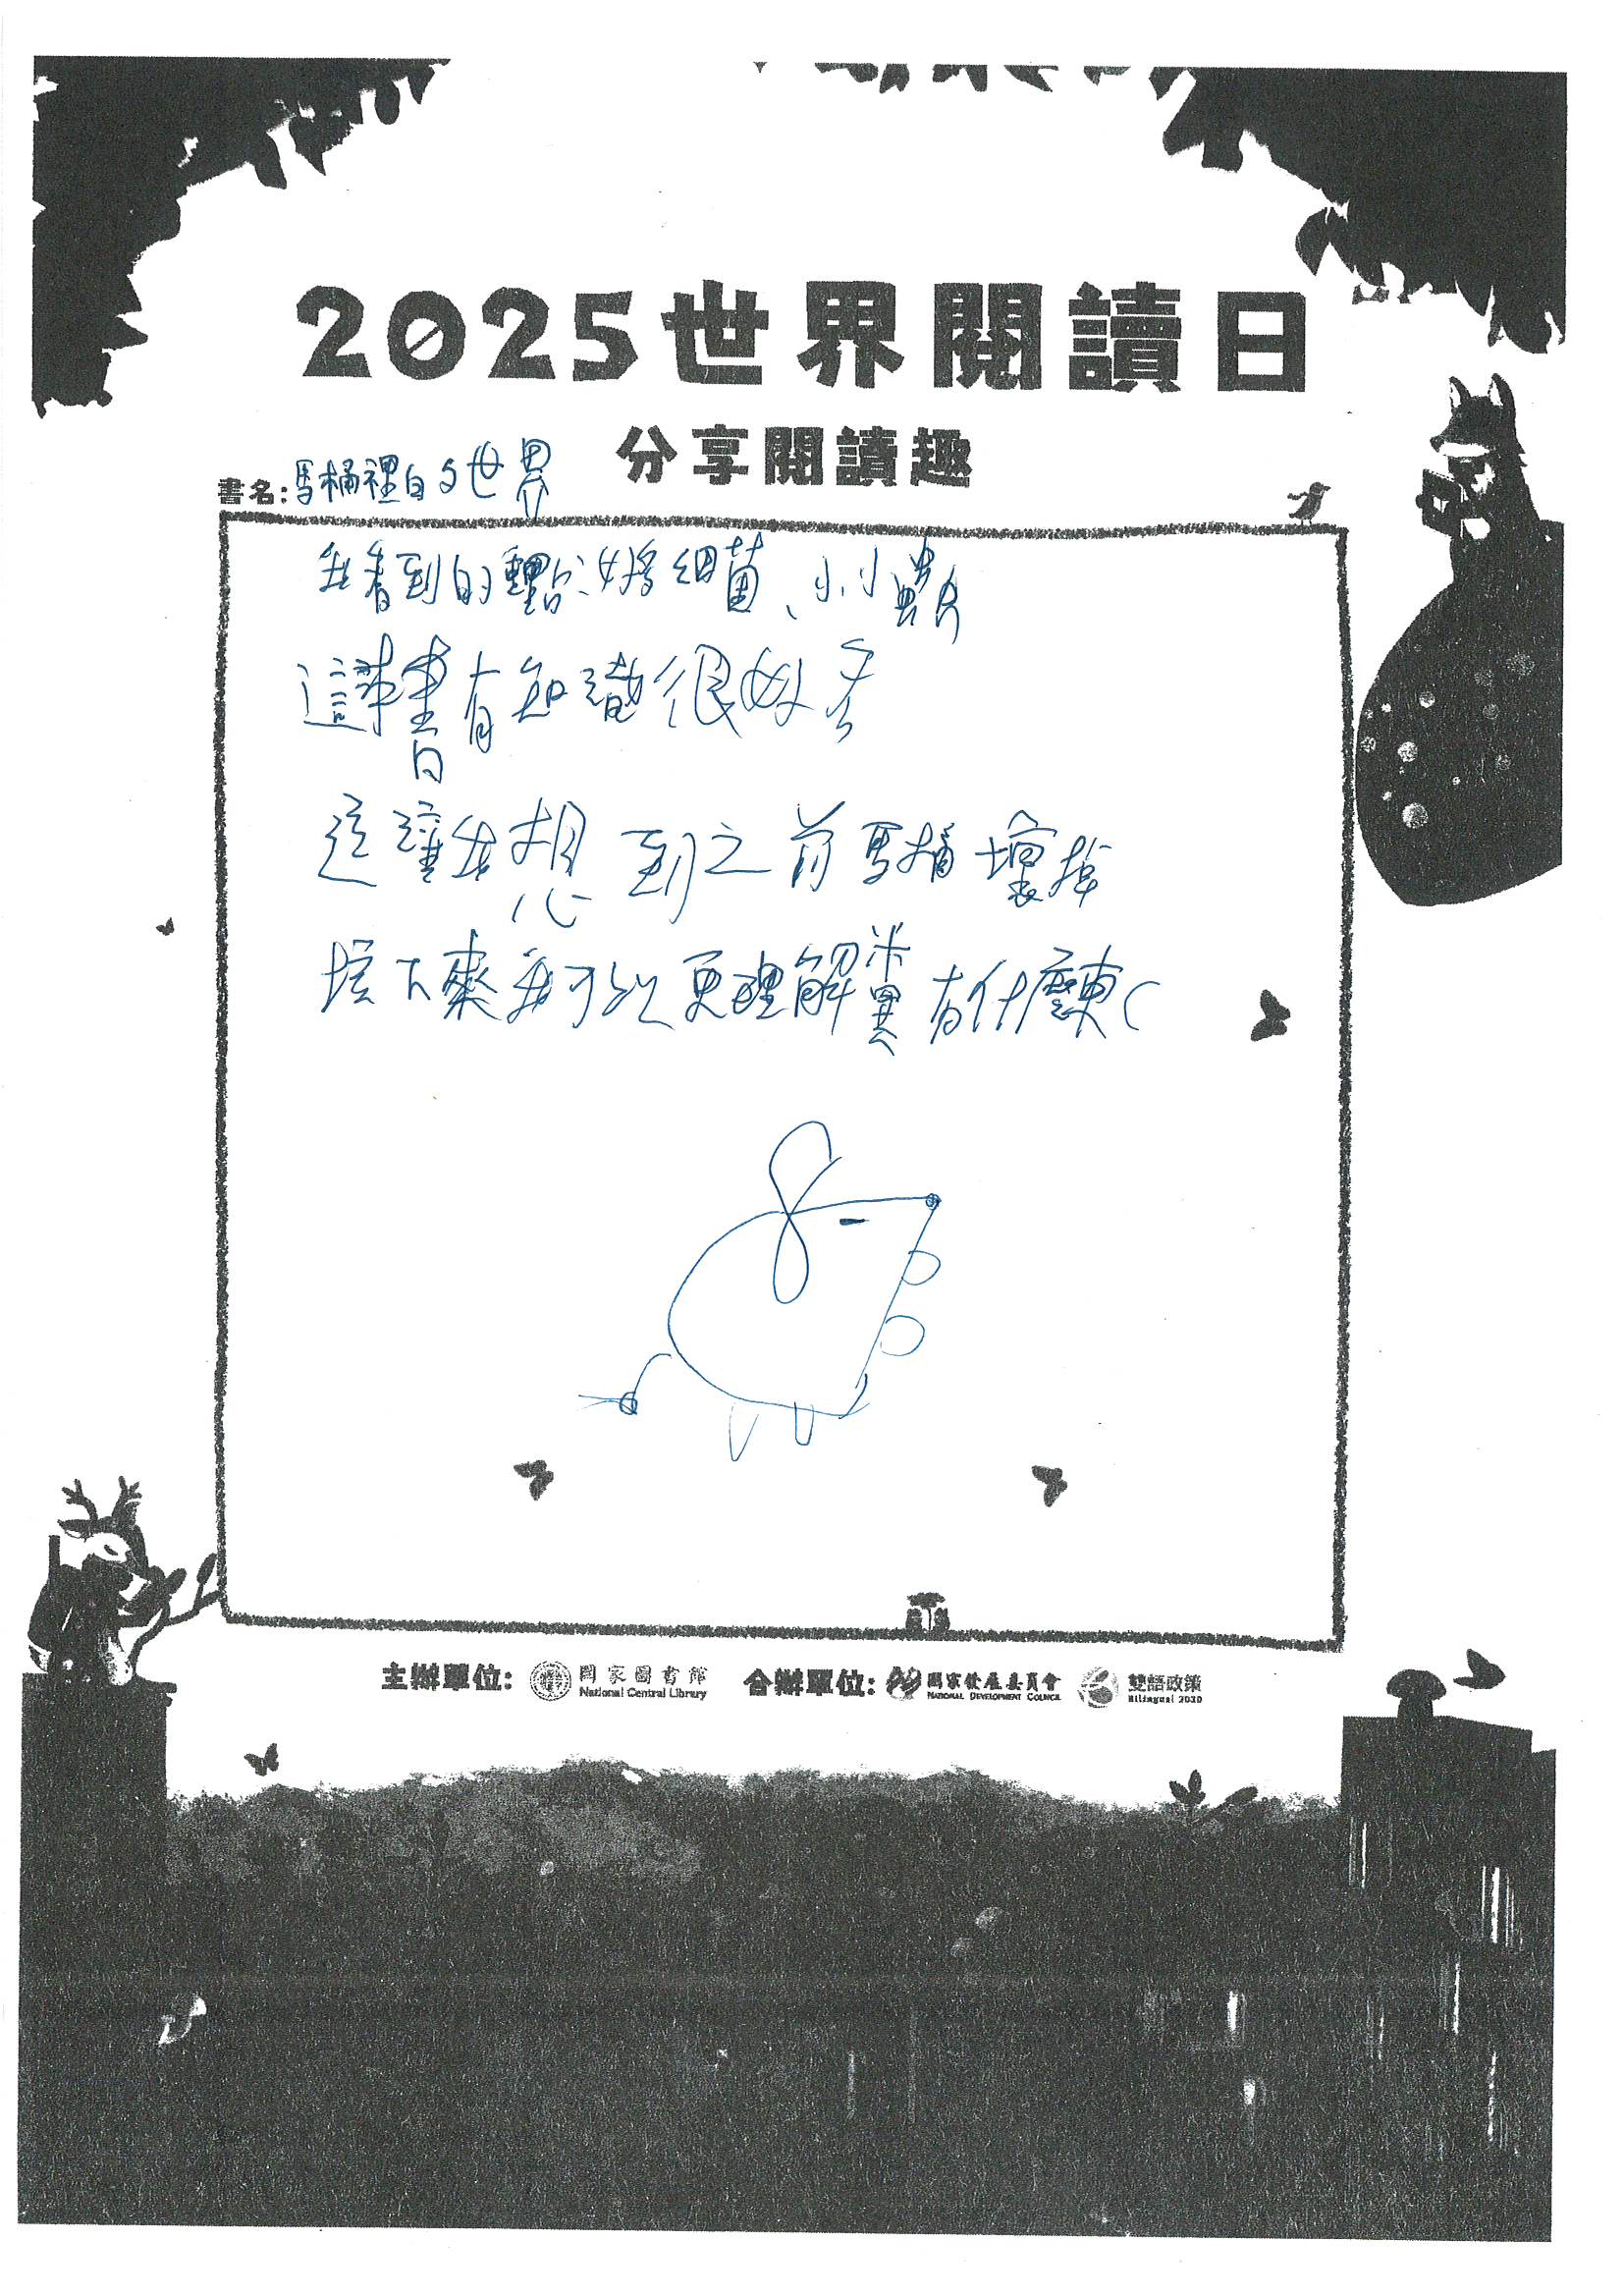 2025世界閱讀日
分享閱讀趣
書名:馬桶裡的世界
我看到的重點:好多細菌、小小蟲
這本書有知識很好看
這讓我想到之前馬桶壞掉
接下來我可以更理解糞有什麼東
主辦單位: 國家圖書館 National Central Library 合辦單位: 國家發展委員會 NATIONAL DEVELOPMENT COUNCIL 雙語政策 Bilingual 2030